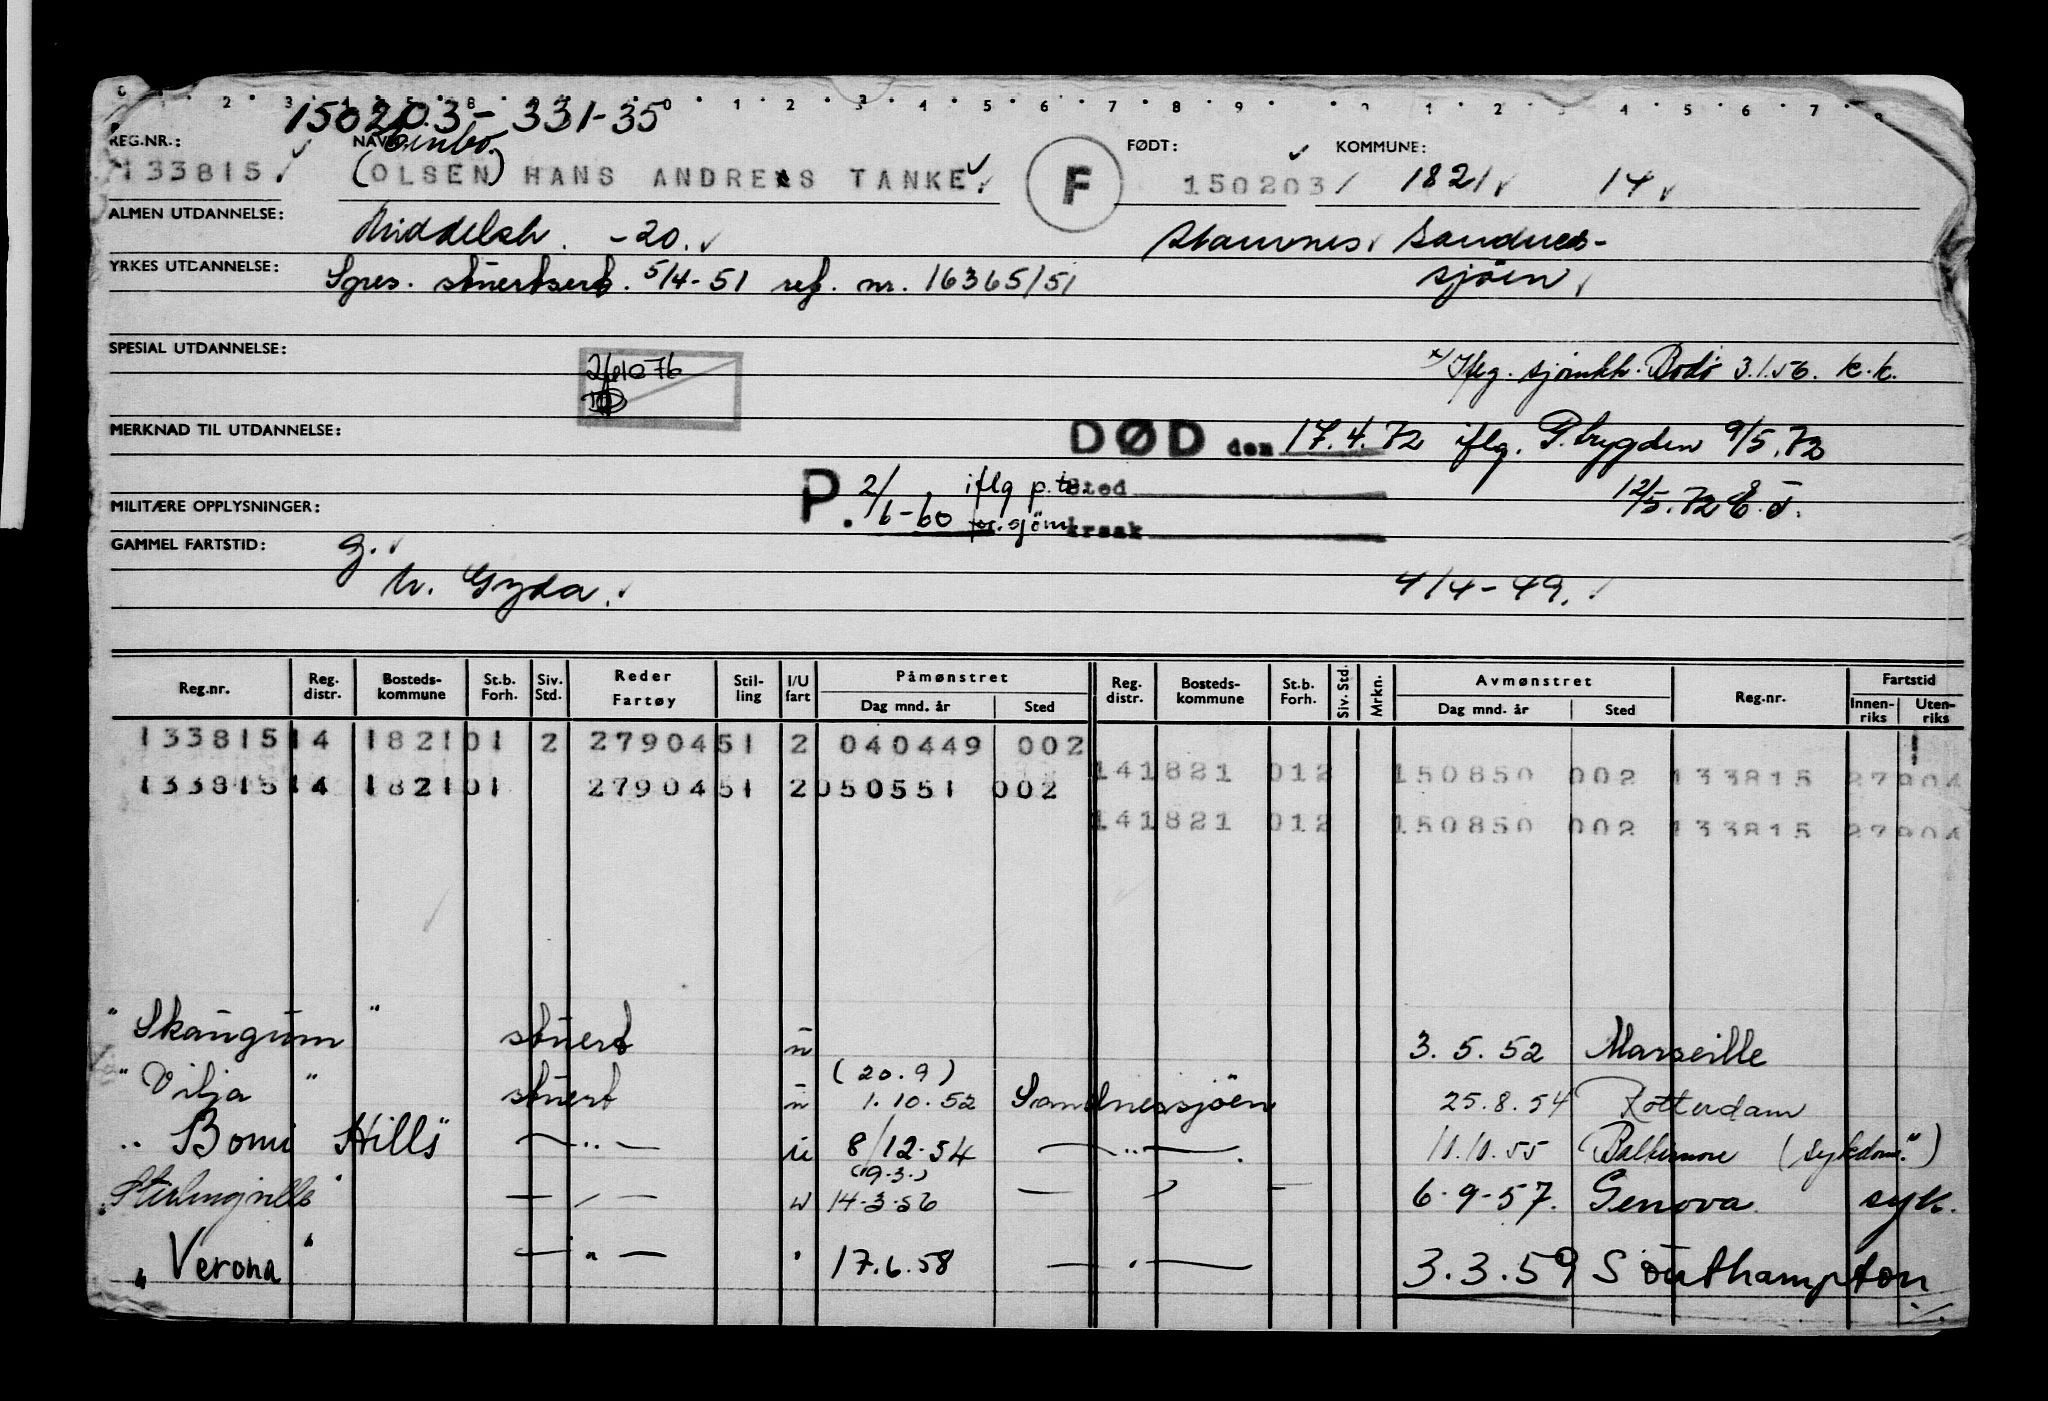 150203-331-35
REG.NR.: NAVN: FØDT: KOMMUNE:
133815 (OLSEN) HANS ANDREAS TANKE F 150203 1821 14
ALMEN UTDANNELSE: Middelsk. -20. Stamnes Sandnes-
YRKES UTDANNELSE: Sgres. stuertsert. 5/4-51 ref. nr. 16365/51 sjöen
SPESIAL UTDANNELSE: x) Iflg. sjømkk. Bodø 3.1.56. k.k.
MERKNAD TIL UTDANNELSE: DØD den 17.4.72 iflg. P.trygden 9/5.72
P. 2/6-60 iflg p.tr. Sted 12/5.72 E.J.
MILITÆRE OPPLYSNINGER: for sjöm. årsak
GAMMEL FARTSTID: g.
M. Gyda. 4/4-49.
Reg.nr. Reg. distr. Bosteds-kommune St.b. Forh. Siv. Std. Reder Fartøy Stil-ling I/U fart Påmønstret Dag mnd. år Sted Reg. distr. Bosteds-kommune St.b. Forh. Siv. Std. Mrkn. Avmønstret Dag mnd. år Sted Reg.nr. Fartstid Innen-riks Uten-riks
133815 14 1821 01 2 27904 51 2 040449 002 1
141821 012 150850 002 133815 27904
133815 14 1821 01 27904 51 2 050551 002
141821 012 150850 002 133815 27904
"Skaugum" stuert u 3.5.52 Marseille
(20.9)
"Vilja" stuert u 1.10.52 Sandnessjöen 25.8.54 Rotterdam
"Bomi Hills" —"— u 8/12.54 —"— 10.10.55 Baltimore (sykdom)
(19.3.)
"Stirlingville" —"— u 14-3-56 —"— 6-9-57. Genova syk.
"Verona" —"— " 17.6.58 —"— 3.3.59 Southampton